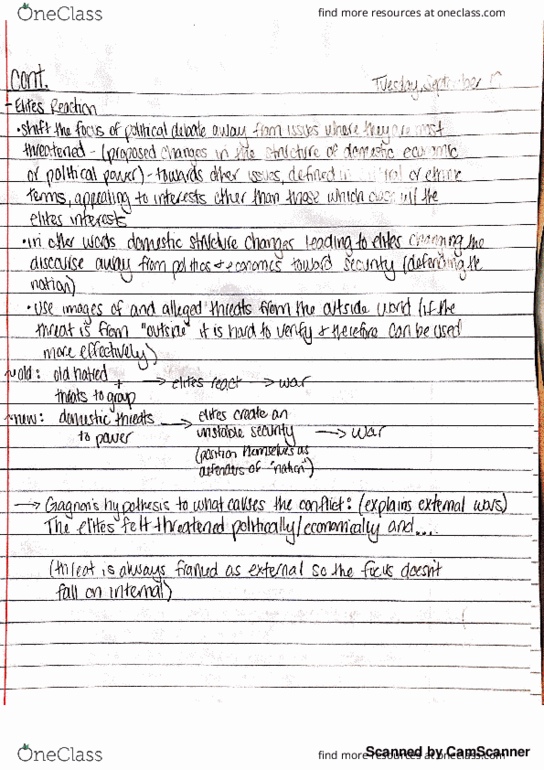 OneClass
find more resources at oneclass.com
cont.
Tuesday, September
- Elites Reaction
• shift the focus of political debate away from issues where they are most
threatened - (proposed changes in the structure of domestic economic
or political power) - towards other issues, defined in or ethnic
terms, appealing to interests other than those which the
elites interests
• in other words domestic structure changes leading to elites changing the
discourse away from politics + economics toward security (defending the
nation)
• use images of and alleged threats from the outside world (if the
threat is from "outside" it is hard to verify + therefore can be used
more effectively)
old: old hatred
+ → elites react → war
threats to group
new: domestic threats → elites create an
to power unstable security → war
(position themselves as
defenders of "nation")
→ Gagnon's hypothesis to what causes the conflict: (explains external wars)
The elites felt threatened politically/economically and...
(threat is always framed as external so the focus doesn't
fall on internal)
OneClass
find more resources at oneclass.com
Scanned by CamScanner